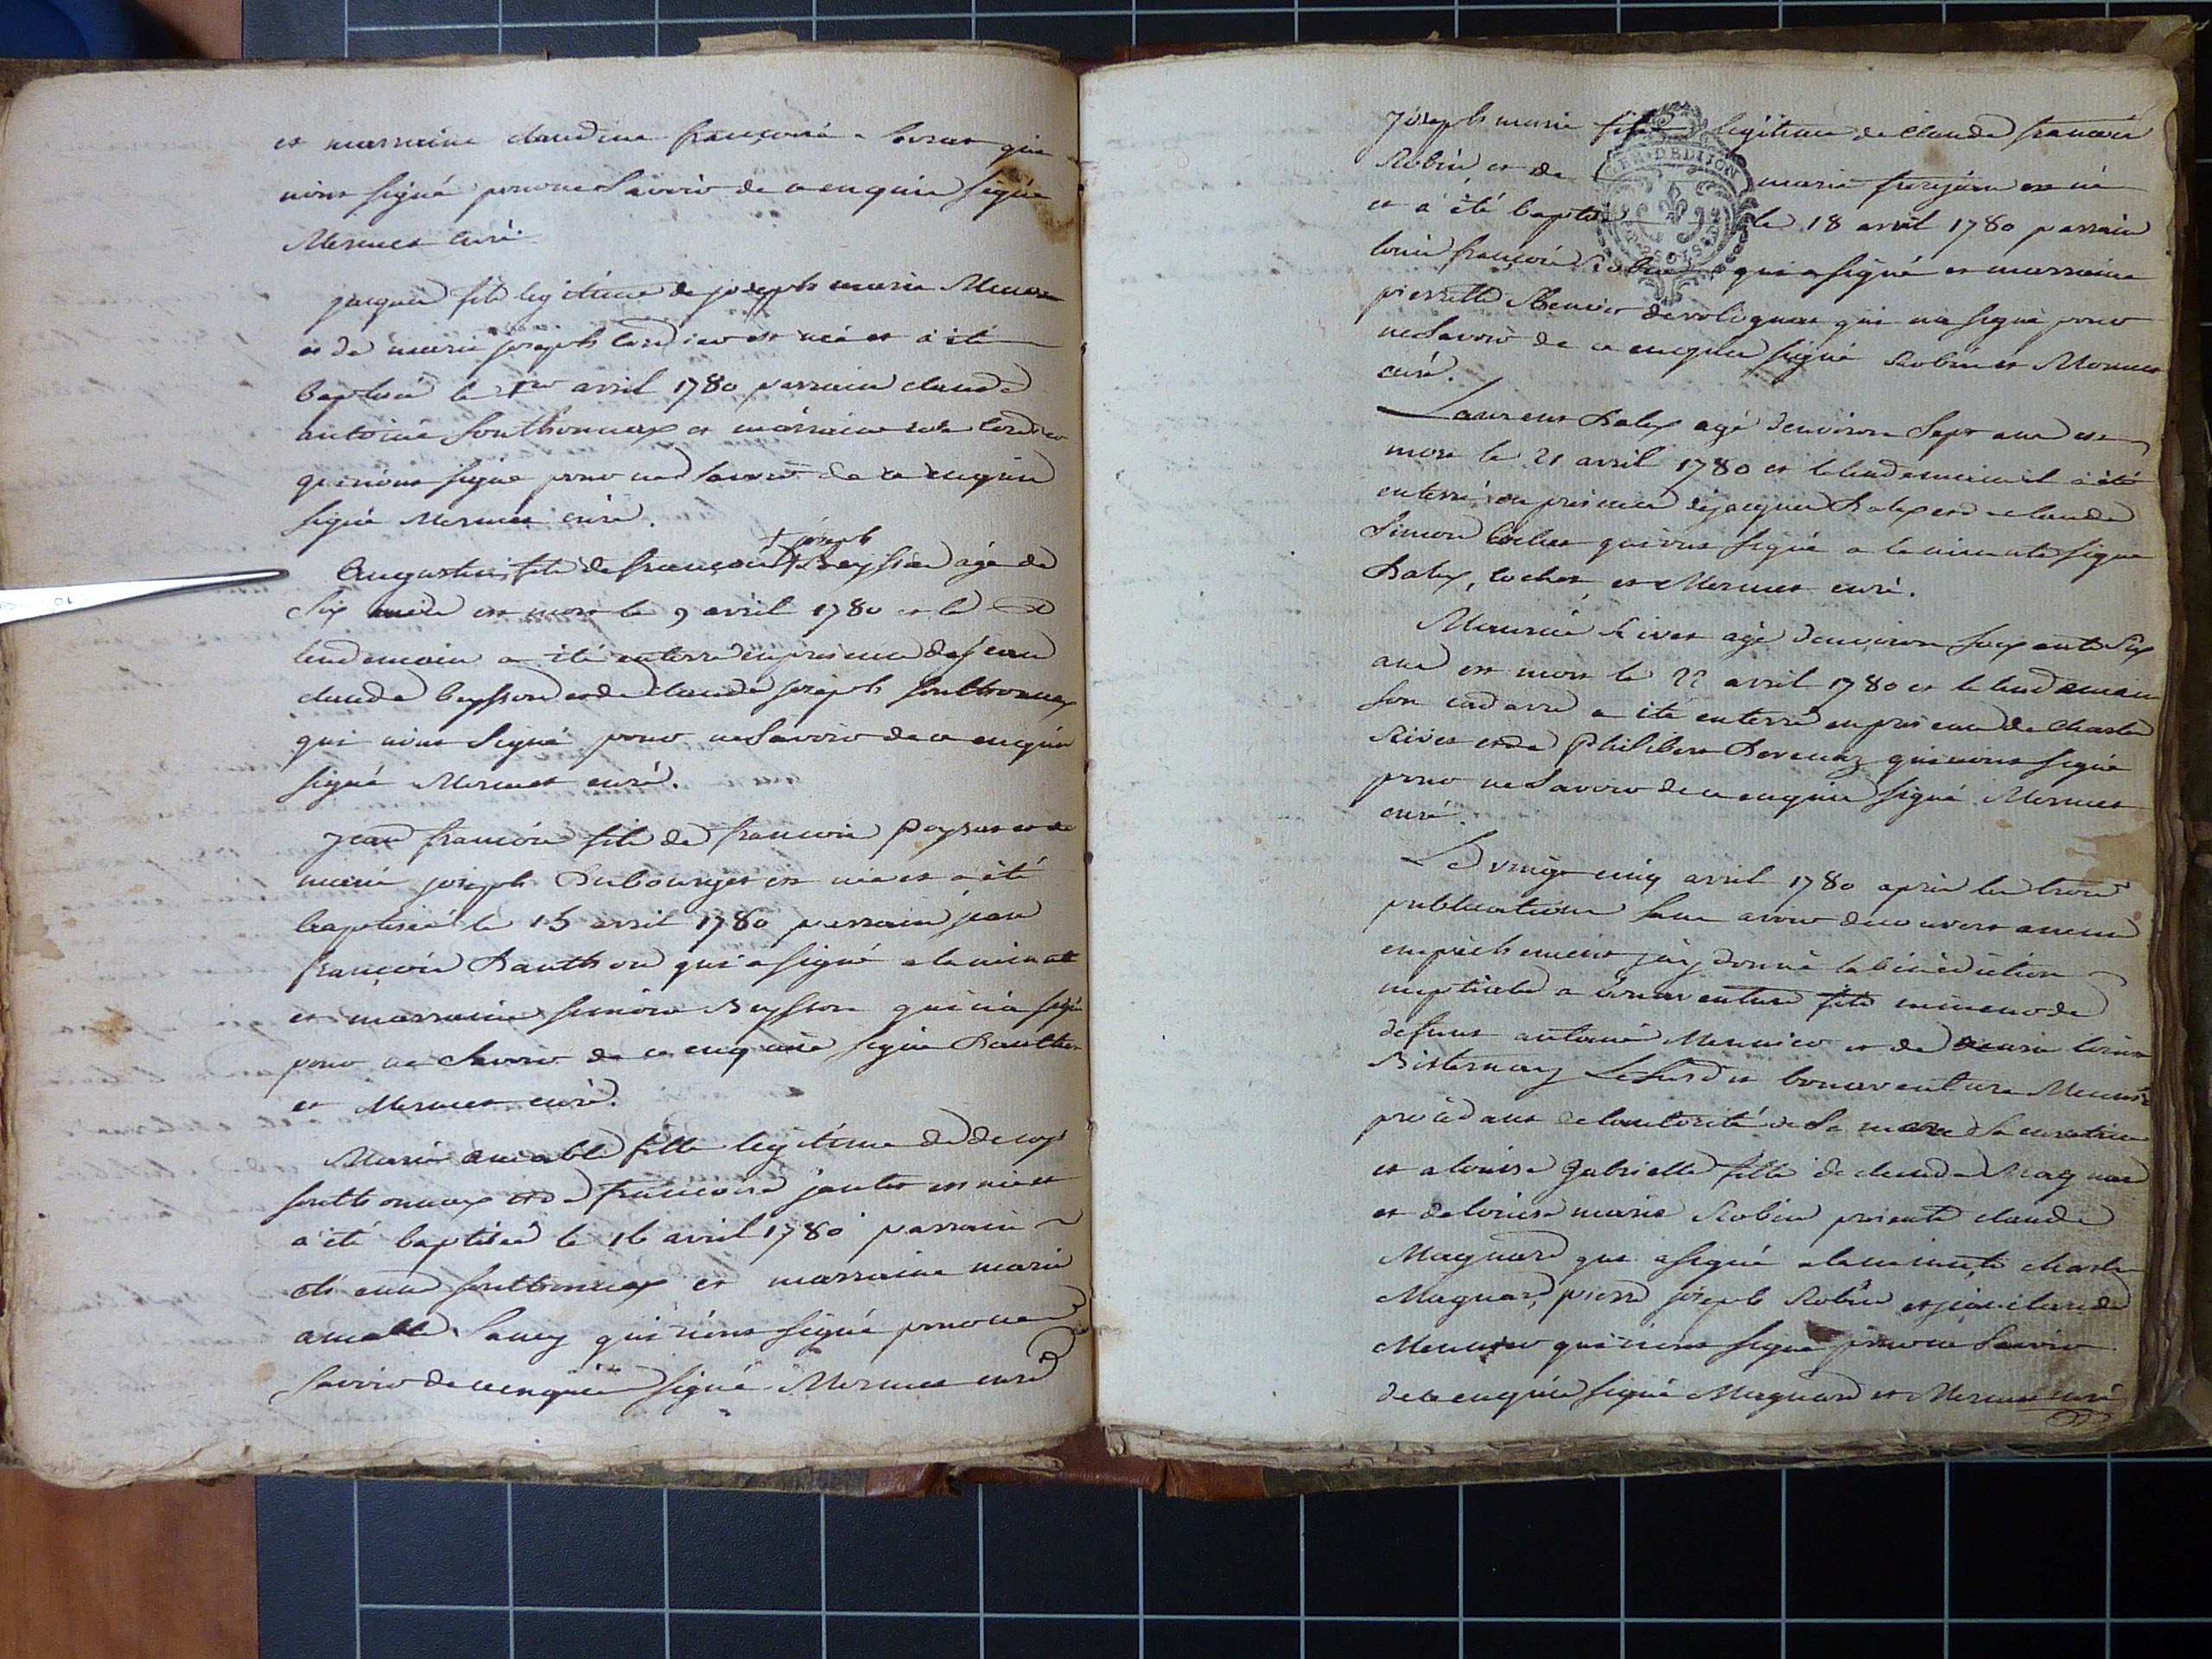 et marraine claudine françoise qui
n'ont signé pour ne savoir de ce enquis signé
Mermet curé
jacques fils legitime de joseph marie
et de marie joseph est né et a été
baptisé le 1er avril 1780 parrain claude
antoine Sonthonnax et marraine
qui n'ont signé pour ne savoir de ce enquis
signé Mermet curé.
+ joseph
Augustin fils de françois + Beysson agé de
Six mois est mort le 9 avril 1780 et le
lendemain a été enterré en presence de jean
claude beysson et de claude joseph Sonthonnax
qui n'ont signé pour ne savoir de ce enquis
signé Mermet curé.
jean françois fils de françois et de
marie joseph Dubourget est né et a été
baptisé le 15 avril 1780 parrain jean
françois qui a signé a la minute
et marraine Beysson qui n'a signé
pour ne savoir de ce enquise signé
et Mermet curé.
Marie amable fille legitime de
Sonthonnax et de françoise est née et
a été baptisée le 16 avril 1780 parrain
Sonthonnax et marraine marie
amable qui n'ont signé pour ne
savoir de ce enquis signé Mermet curé
Joseph marie fils legitime de Claude françois
Robin et de marie est né
et a été baptisé le 18 avril 1780 parrain
louis françois Robin qui a signé et marraine
pierrette de volognat qui n'a signé pour
ne savoir de ce enquise signé Robin et Mermet
curé.
Laurent agé d'environ Sept ans est
mort le 21 avril 1780 et le lendemain il a été
enterré en presence de jacques et de claude
Simon Cochet qui ont signé a la minute signé
Cochet, et Mermet curé.
Maurice Rivet agé d'environ
ans est mort le 22 avril 1780 et le lendemain
son cadavre a été enterré en presence de Charles
Rivet et de Philibert qui n'ont signé
pour ne savoir de ce enquis signé Mermet
curé.
Le vingt cinq avril 1780 après les trois
publications sans avoir decouvert aucun
empechement j'ay donné la bénédiction
nuptiale a bonaventure fils mineur de
defunt antoine Meunier et de marie louise
Le susdit bonaventure Meunier
procedant de l'autorité de Sa mere Sa curatrice
et a louise Gabrielle fille de claude Magnard
et de louise marie Robin presents claude
Magnard qui a signé a la minute, charles
Magnard, pierre joseph Robin et jean claude
Meunier qui n'ont signé pour ne savoir
de ce enquis signé Magnard et Mermet curé
GEN. DE DIJON